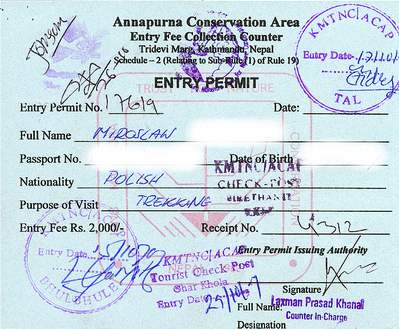 Annapurna Conservation Area
Entry Fee Collection Counter
Tridevi Marg, Kathmandu, Nepal
Schedule – 2 (Relating to Sub-Rule (1) of Rule 19)
ENTRY PERMIT
KMTNC/ACAP
Entry Date
TAL
Entry Permit No. 17619 Date:
Full Name MIROSLAW
Passport No. Date of Birth
KMTNC/ACAP
CHECK-POST
BIRETHANTI
Nationality POLISH
Purpose of Visit TREKKING
Entry Fee Rs. 2,000/- Receipt No. 4312
KMTNC/ACAP
Entry Date
BHULBHULE
KMTNC/ACAP
Tourist Check Post
Entry Date
Entry Permit Issuing Authority
Signature
Full Name: Laxman Prasad Khanal
Counter In-Charge
Designation